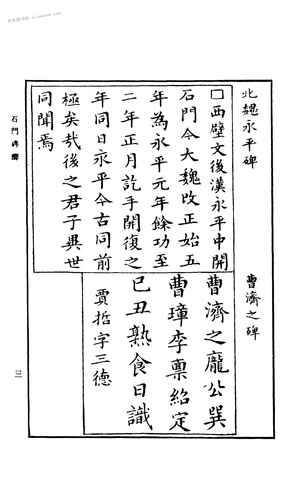 北魏永平碑
□西壁文後漢永平中開
石門今大魏改正始五
年為永平元年餘功至
二年正月訖手開復之
年同日永平今古同前
極矣哉後之君子異世
同聞焉
曹濟之碑
曹濟之龐公巽
曹璋李稟紹定
己丑熟食日識
賈哲字三德
石門碑
三